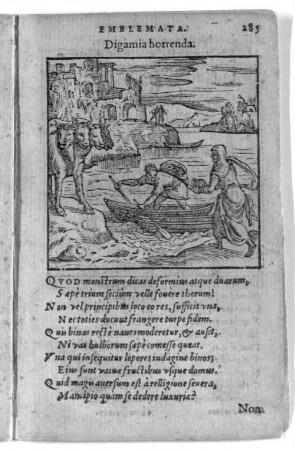 EMBLEMATA. 285
Digamia horrenda.
QVOD monstrum dicas deformius atque duarum,
Sæpè trium sociûm velle fovere thorum?
Non vel principibus loco eo res, sufficit vna,
Nec toties ducunt frangere turpe fidem.
Qui binas rectè naves moderetur, &
Ni vas bulborum sæpè comesse queat.
Vna qui insequitur lepores indagine binos:
Eius sunt vacuæ fructibus vsque domus.
Quid magis auersum est à relligione seuera,
Mancipio quàm se dedere luxuriæ?
Non